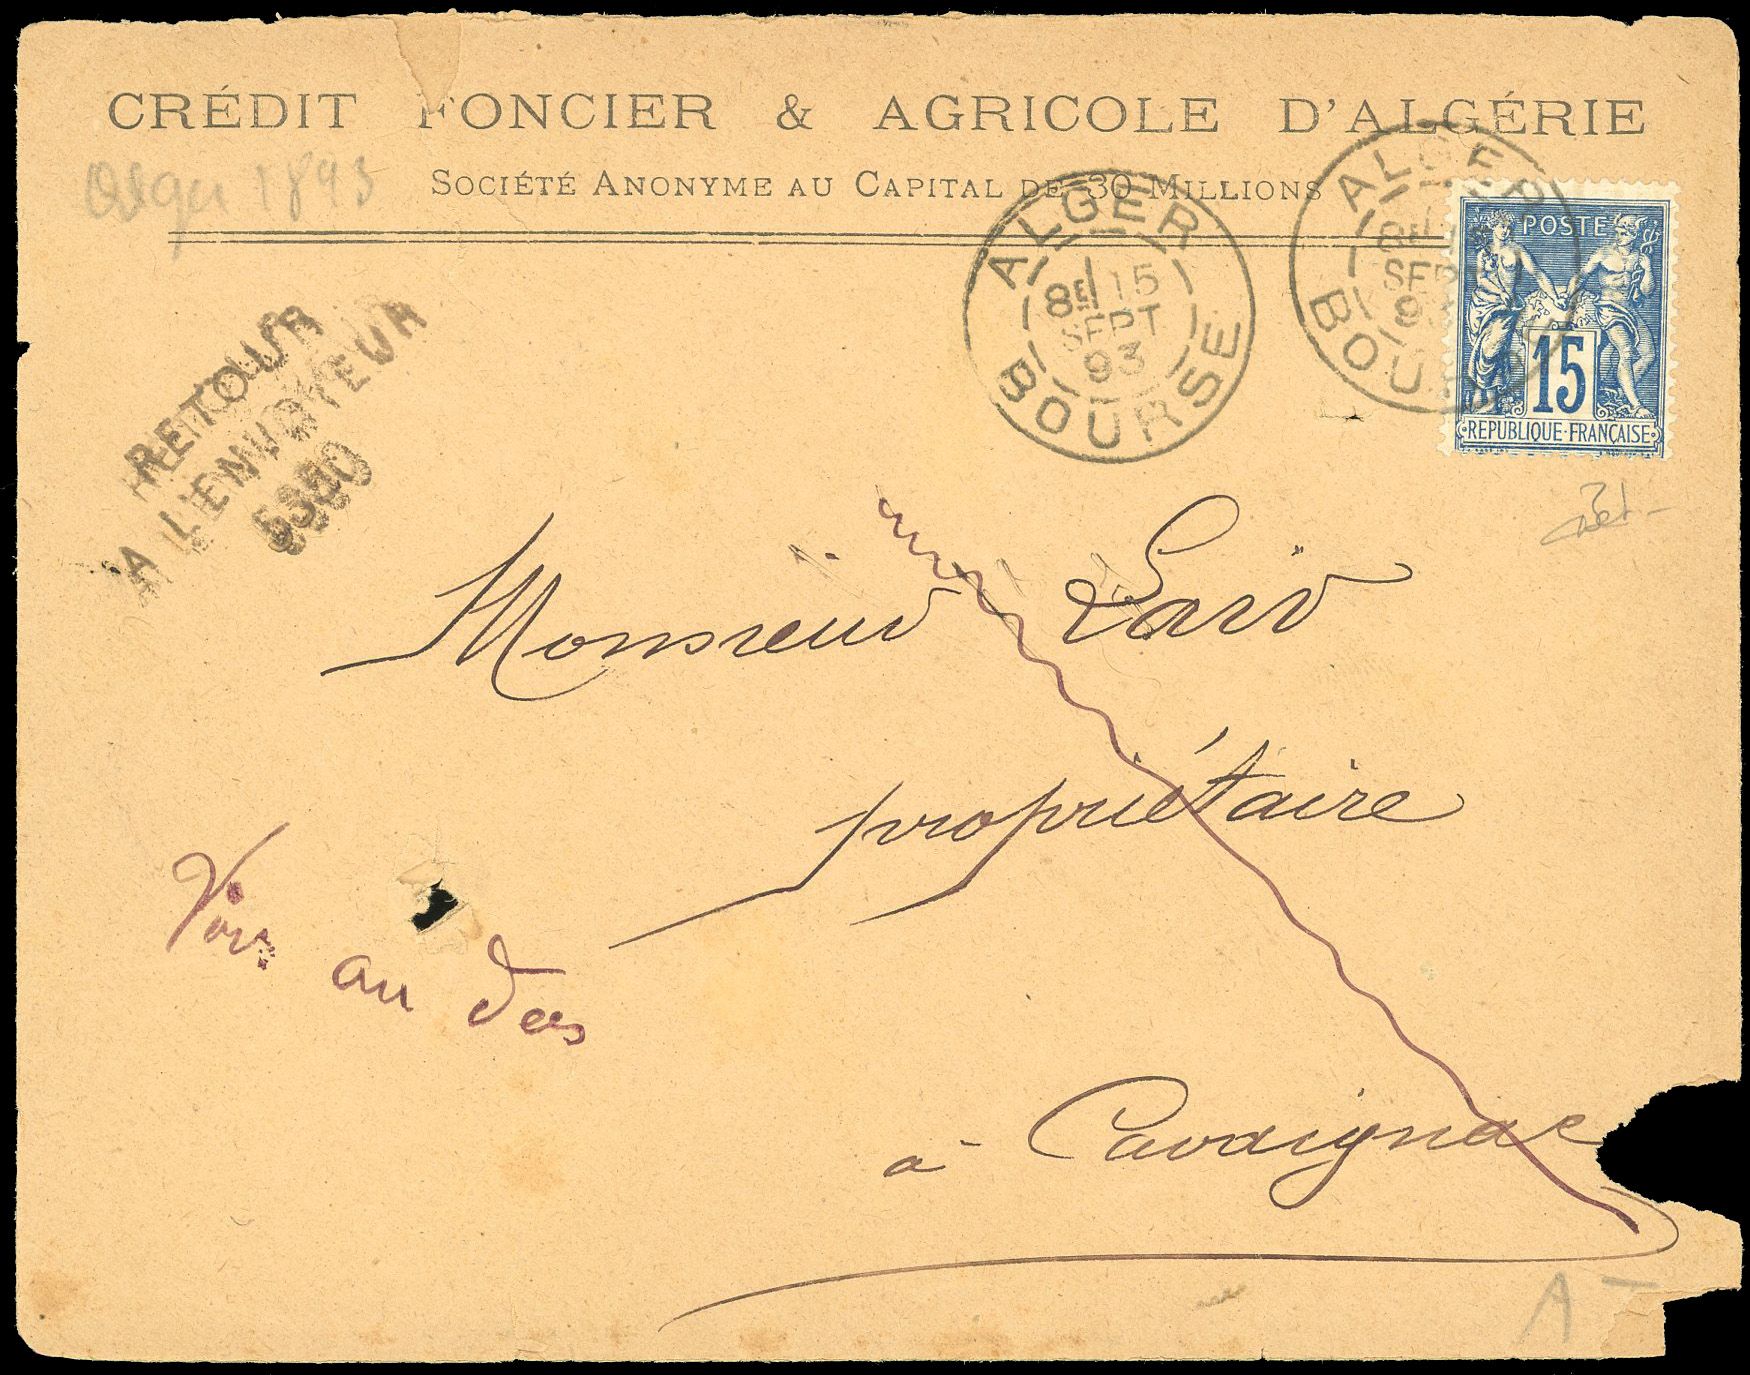 CRÉDIT FONCIER & AGRICOLE D'ALGÉRIE
SOCIÉTÉ ANONYME AU CAPITAL DE 30 MILLIONS
1893
ALGER
8E/15
SEPT
93
BOURSE
ALGER
8E
SEP
93
BOU
POSTE
15
REPUBLIQUE FRANÇAISE
RETOUR
A L'ENVOYEUR
Monsieur
propriétaire
à Cavaignac
Voir au dos
A